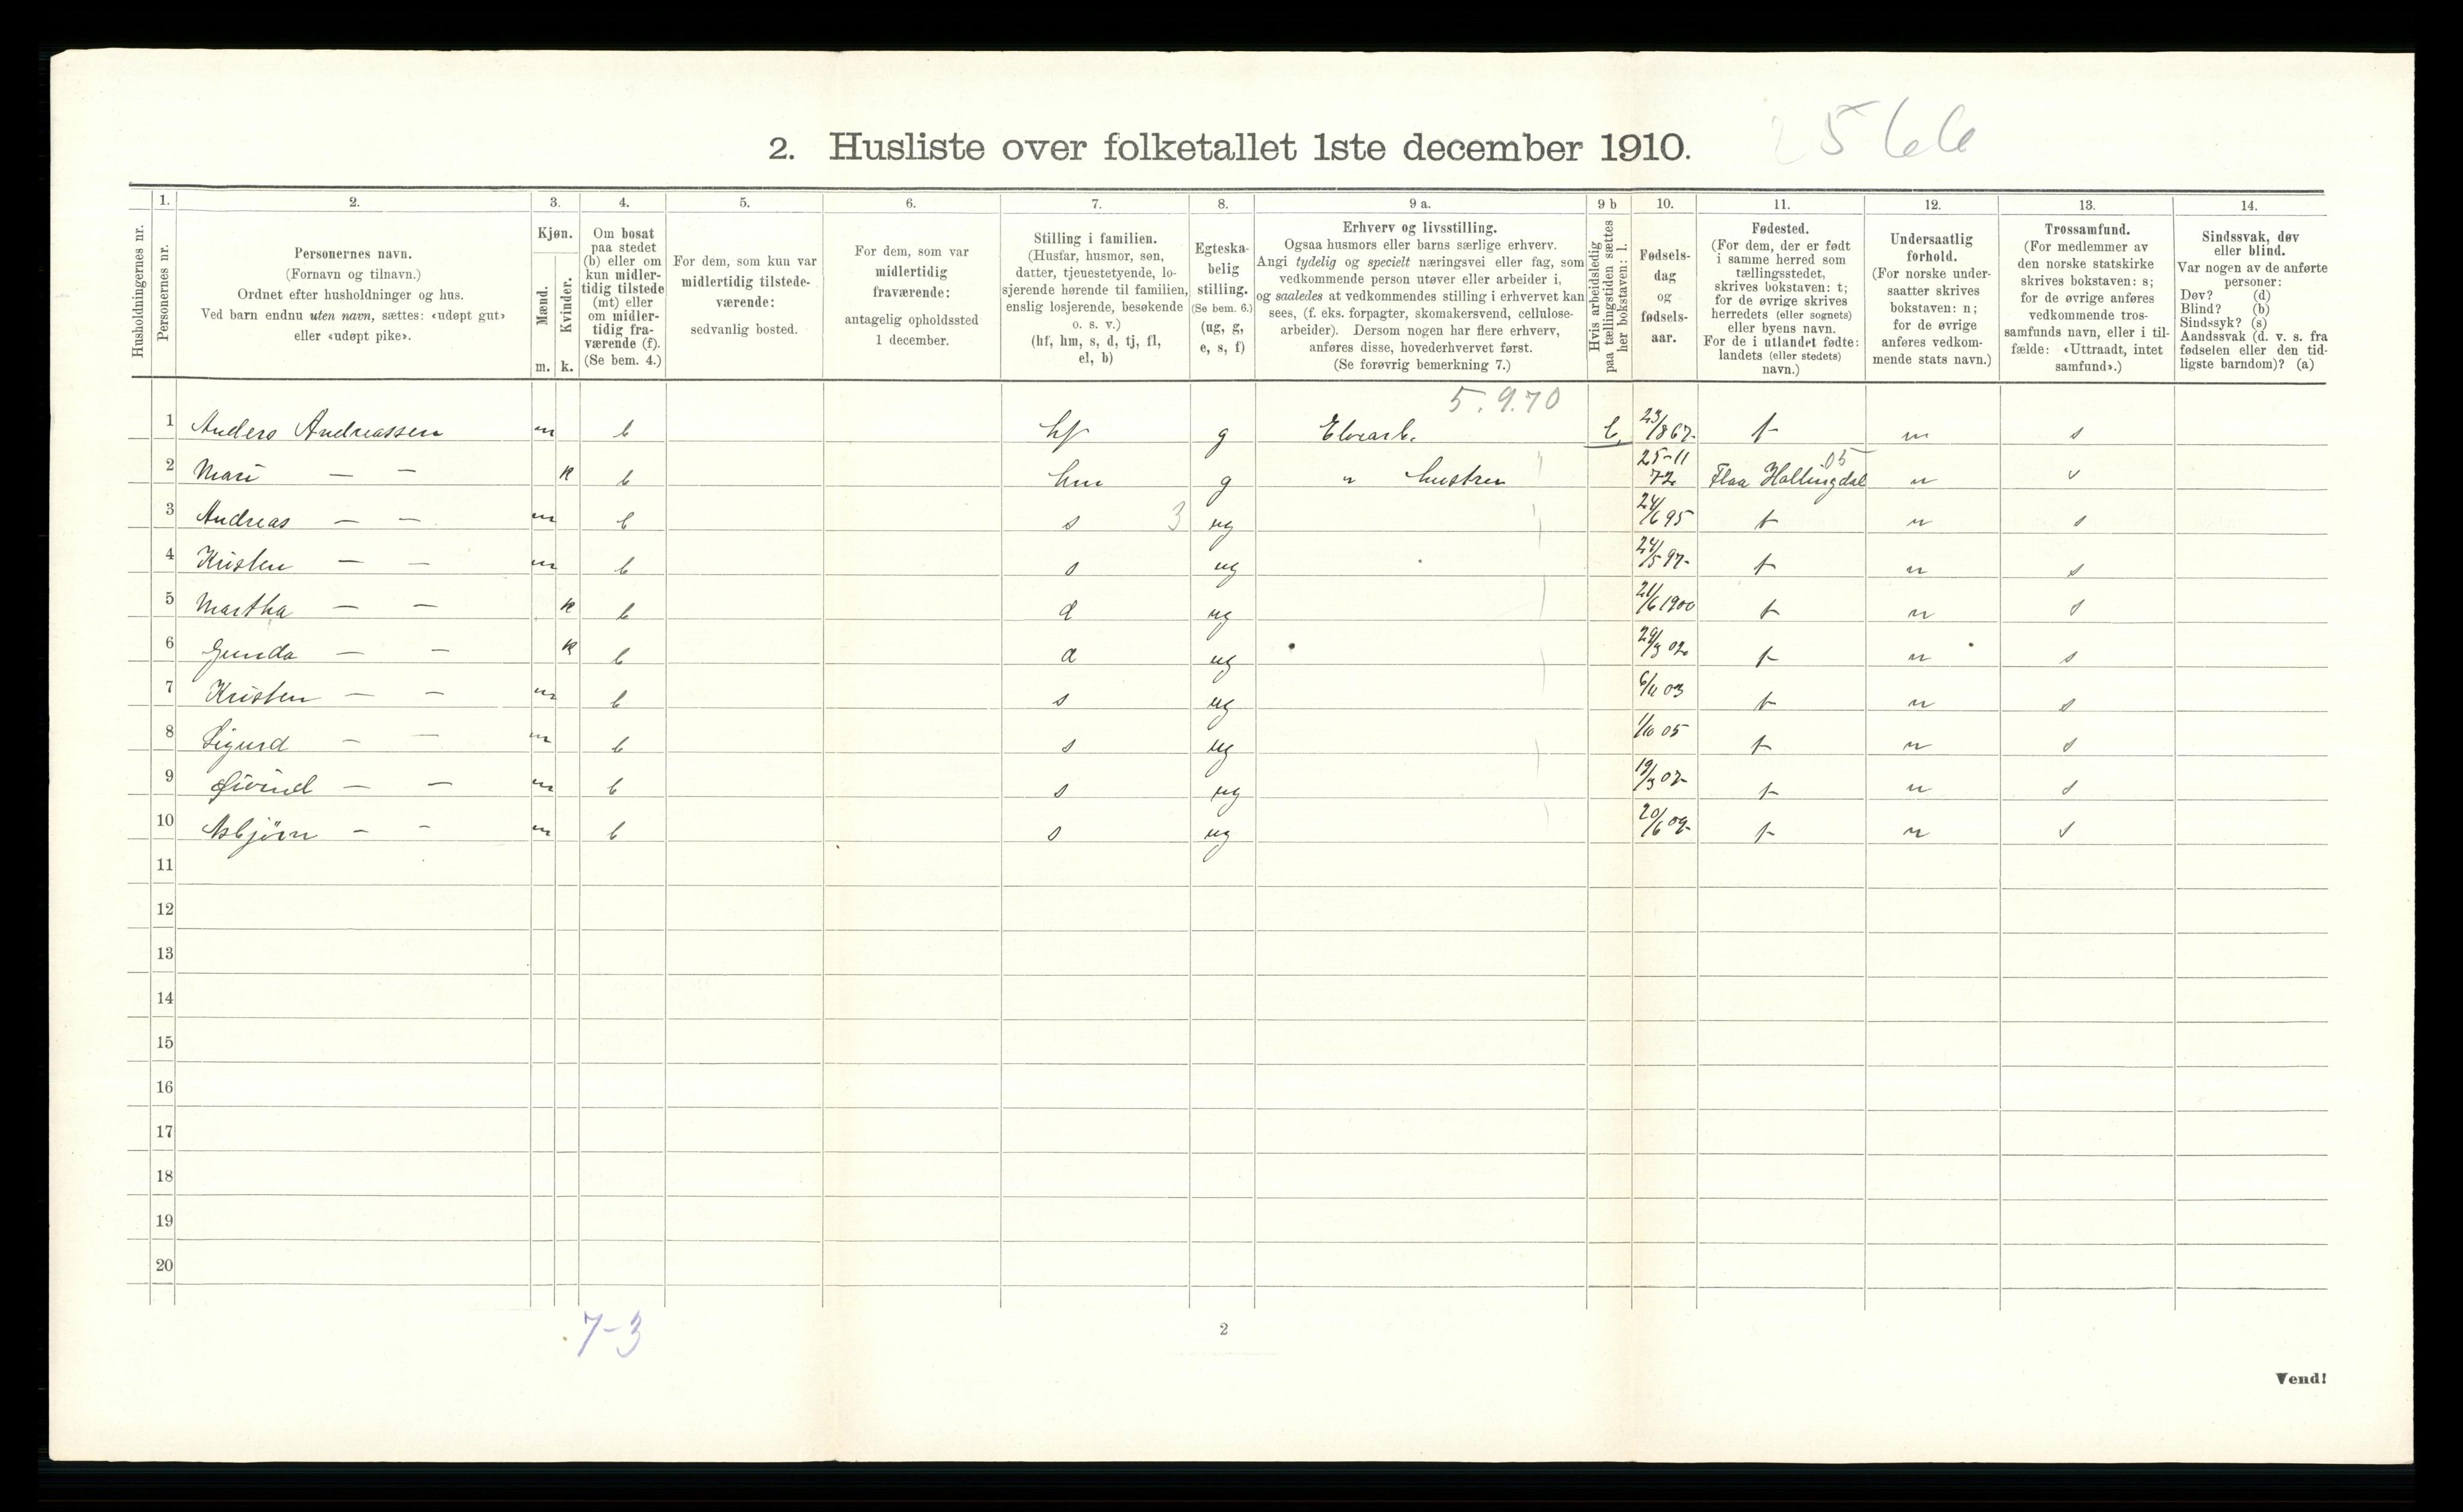 2566
2. Husliste over folketallet 1ste december 1910.
Husholdningernes nr.
1. Personernes nr.
2. Personernes navn. (Fornavn og tilnavn.) Ordnet efter husholdninger og hus. Ved barn endnu uten navn, sættes: «udøpt gut» eller «udøpt pike».
3. Kjøn. Mænd. m. Kvinder. k.
4. Om bosat paa stedet (b) eller om kun midlertidig tilstede (mt) eller om midlertidig fraværende (f). (Se bem. 4.)
5. For dem, som kun var midlertidig tilstedeværende: sedvanlig bosted.
6. For dem, som var midlertidig fraværende: antagelig opholdssted 1 december.
7. Stilling i familien. (Husfar, husmor, søn, datter, tjenestetyende, losjerende hørende til familien, enslig losjerende, besøkende o. s. v.) (hf, hm, s, d, tj, fl, el, b)
8. Egteskabelig stilling. (Se bem. 6.) (ug, g, e, s, f)
9 a. Erhverv og livsstilling. Ogsaa husmors eller barns særlige erhverv. Angi tydelig og specielt næringsvei eller fag, som vedkommende person utøver eller arbeider i, og saaledes at vedkommendes stilling i erhvervet kan sees, (f. eks. forpagter, skomakersvend, cellulosearbeider). Dersom nogen har flere erhverv, anføres disse, hovederhvervet først. (Se forøvrig bemerkning 7.)
9 b Hvis arbeidsledig paa tællingstiden sættes her bokstaven: l.
10. Fødselsdag og fødselsaar.
11. Fødested. (For dem, der er født i samme herred som tællingsstedet, skrives bokstaven: t; for de øvrige skrives herredets (eller sognets) eller byens navn. For de i utlandet fødte: landets (eller stedets) navn.)
12. Undersaatlig forhold. (For norske undersaatter skrives bokstaven: n; for de øvrige anføres vedkommende stats navn.)
13. Trossamfund. (For medlemmer av den norske statskirke skrives bokstaven: s; for de øvrige anføres vedkommende trossamfunds navn, eller i tilfælde: «Uttraadt, intet samfund».)
14. Sindssvak, døv eller blind. Var nogen av de anførte personer: Døv? (d) Blind? (b) Sindssyk? (s) Aandssvak (d. v. s. fra fødselen eller den tidligste barndom)? (a)
5.9.70
1 Anders Andreassen m b hf g Elvearb. l. 23/8 67 t n s
05
2 Mari — — k b hm g " hustru 25-11 72 Flaa Hallingdal n s
3 Andreas — — m b s 3 ug 24/6 95 t n s
4 Kristen — — m b s ug 24/5 97 t n s
5 Martha — — k b d ug 21/6 1900 t n s
6 Gunda — — k b d ug 29/3 02 t n s
7 Kristen — — m b s ug 6/11 03 t n s
8 Sigurd — — m b s ug 1/10 05 t n s
9 Øivind — — m b s ug 19/3 07 t n s
10 Asbjörn — — m b s ug 20/6 09 t n s
11
12
13
14
15
16
17
18
19
20
7-3
2
Vend!